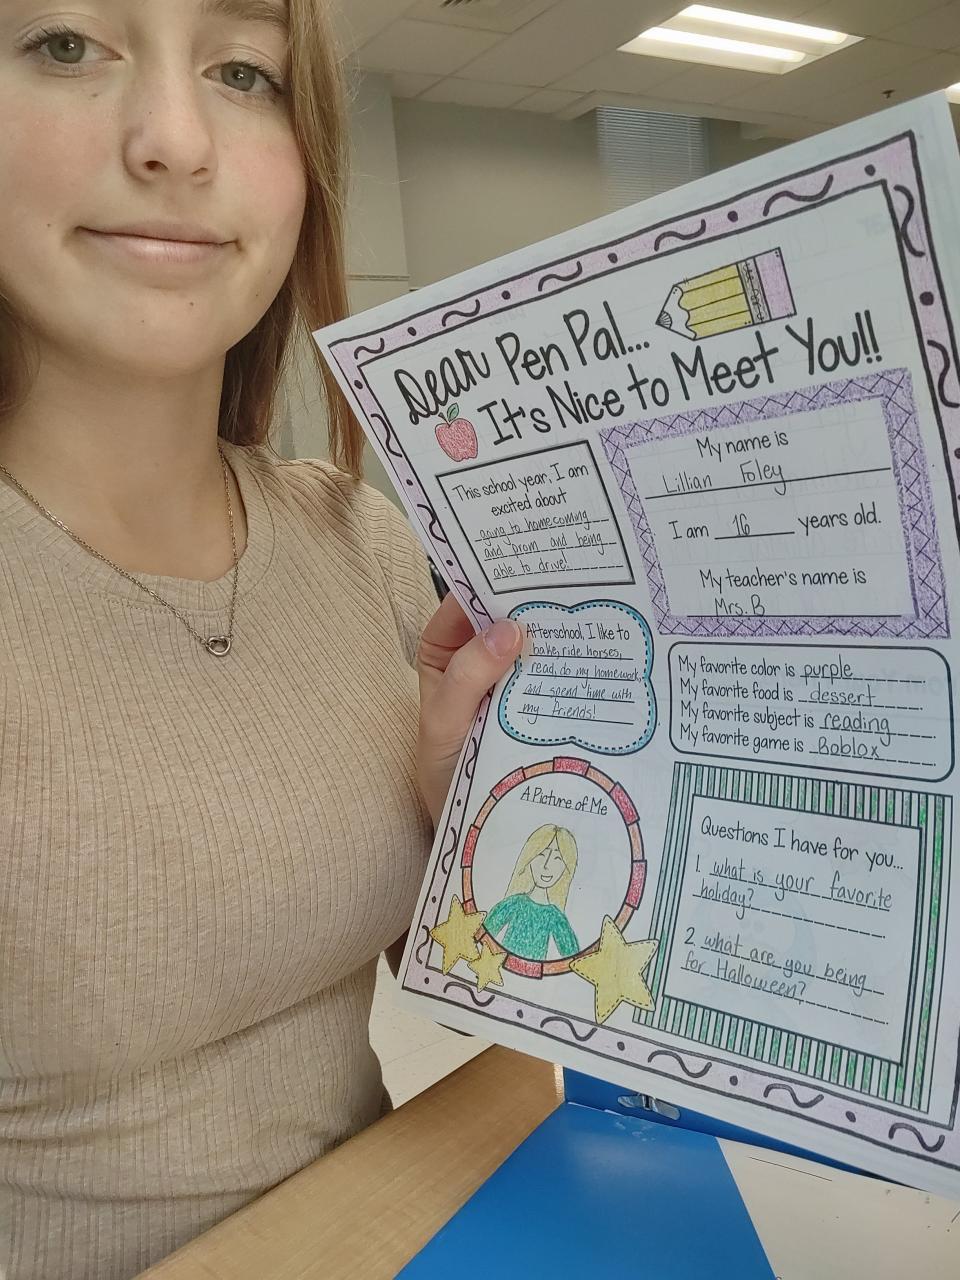 Dear Pen Pal...
It's Nice to Meet You!!
This school year, I am
excited about
going to homecoming
and prom and being
able to drive!
My name is
Lillian Foley
I am 16 years old.
My teacher's name is
Mrs. B
Afterschool, I like to
bake, ride horses,
read, do my homework,
and spend time with
my friends!
My favorite color is purple
My favorite food is dessert.
My favorite subject is reading.
My favorite game is Roblox.
A Picture of Me
Questions I have for you...
1. what is your favorite
holiday?
2. what are you being
for Halloween?